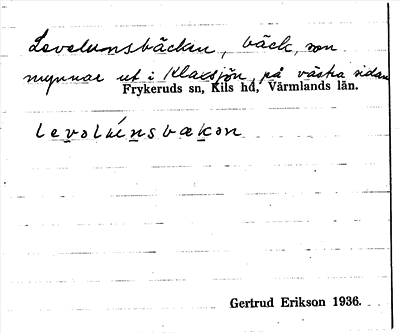 Levelunsbäcken, bäck, som
mynnar ut i Klaesjön, på västra sidan
Frykeruds sn, Kils hd, Värmlands län.
levolúnsbækən
Gertrud Erikson 1936.